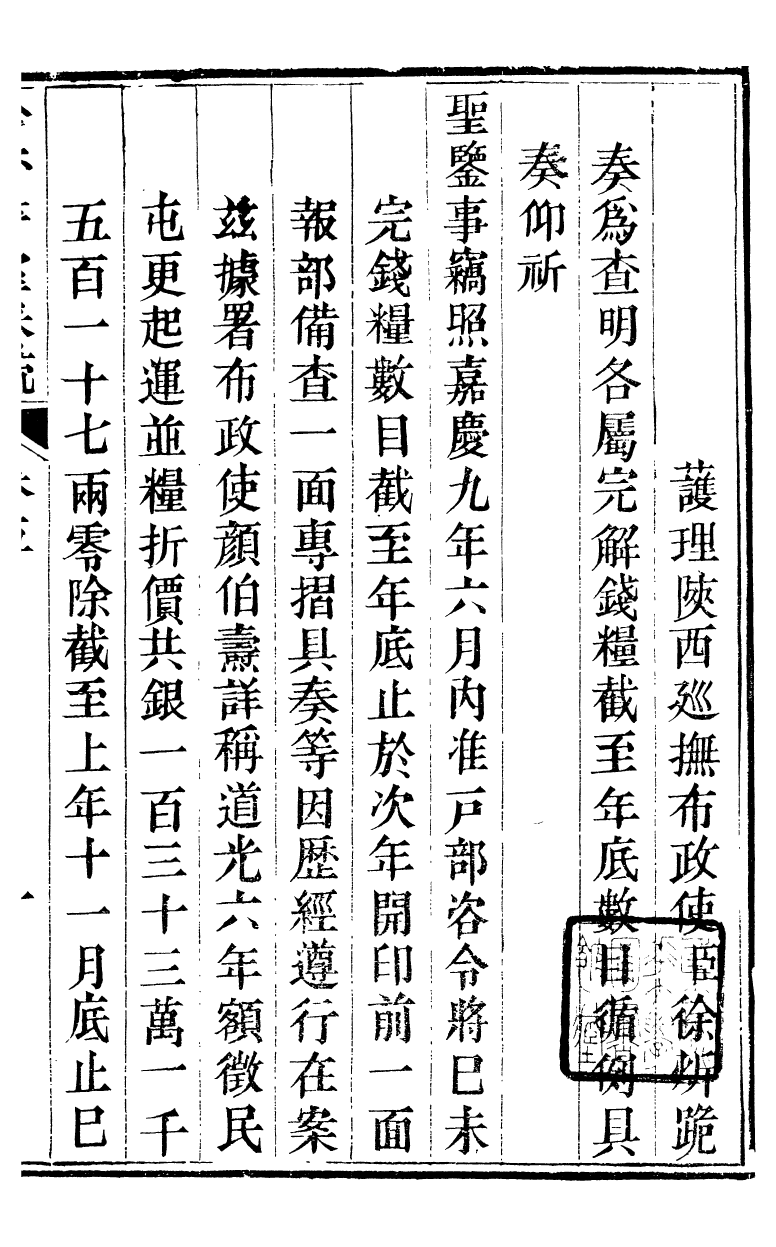 護理陝西廵撫布政使臣徐炘跪
奏爲查明各屬完解錢糧截至年底數目循例具
奏仰祈
聖鑒事竊照嘉慶九年六月內准戸部咨令將已未
完錢糧數目截至年底止於次年開印前一面
報部備查一面專摺具奏等因歴經遵行在案
兹據署布政使顔伯燾詳稱道光六年額徵民
屯更起運並糧折價共銀一百三十三萬一千
五百一十七兩零除截至上年十一月底止已